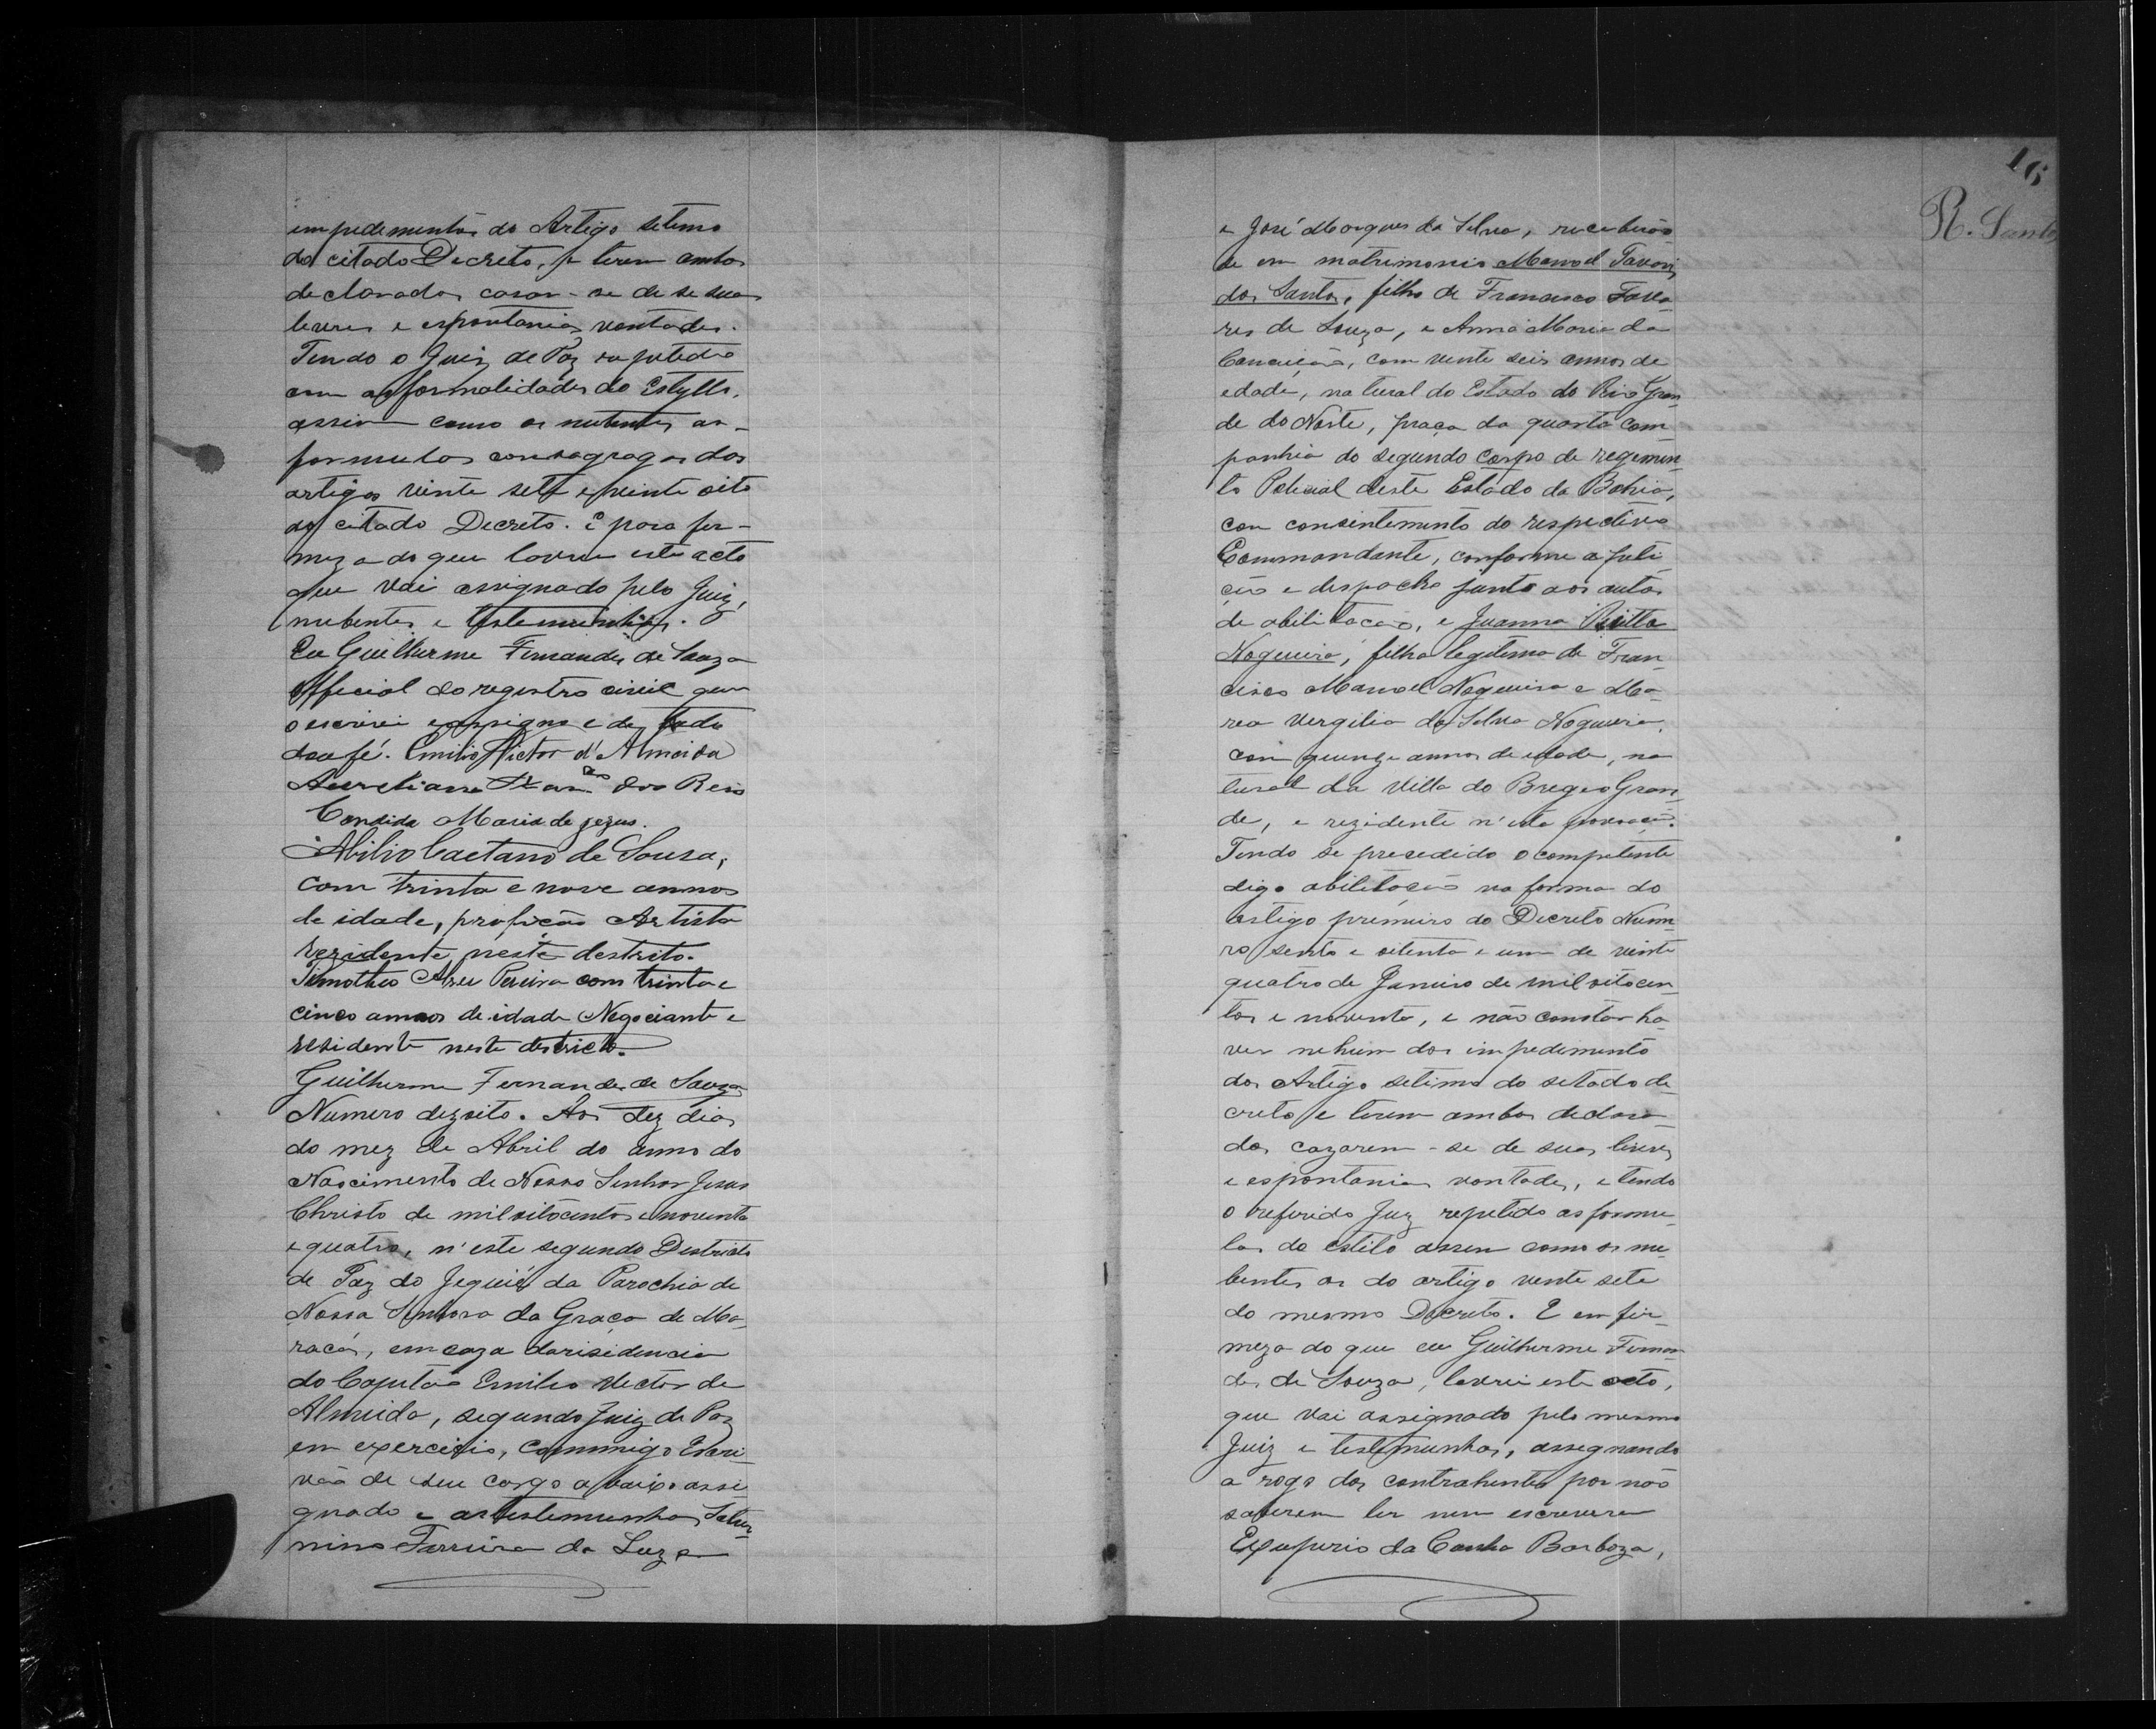 impedimentos do Artigo setimo
do citado Decreto, e terem ambos
declarados casar-se de se suas
livres e espontanias vontades.
Tendo o Juiz de Paz repetido
com as formalidades do Estyllo,
assim como os nubentes as
formulas consagragas dos
artigos vinte sete e vinte oito
do citado Decreto. E para fir-
meza do que lavrei este acto
que vai assignado pelo Juiz,
nubentes e testemunhas.
Eu Guilherme Fernandes de Souza
Official do registro civil que
o escrevi e assigno e de tudo
dou fé. Emilio Victor d'Almeida
Aureliano dos Reis
Candida Maria de jezus.
Abilio Caetano de Sousa,
com trinta e nove annos
de idade, profição Artista
rezidente neste destrito.
Timotheo Abreu Pereira com trinta e
cinco annos de idade Negociante e
residente neste districto.
Guilherme Fernandes de Souza
Numero dezoito. Aos dez dias
do mez de Abril do anno do
Nascimento de Nosso Senhor Jesus
Christo de mil oitocentos e noventa
e quatro, n'este segundo Destricto
de Paz do Jequié da Parochia de
Nossa Senhora da Graça de Ma-
racás, em caza da risidencia
do Capitão Emilio Victor de
Almeida, segundo Juiz de Paz
em exercicio, commigo Escri-
vão de seu cargo abaixo assi-
gnado e as testemunhas Satur-
nino Ferreira da Luz e
16
R. Santos
e José Marques da Silva, receberão-
se em matrimonio Manoel Tavares
dos Santos, filho de Francisco Tava-
res de Souza, e Anna Maria da
Conceição, com vinte seis annos de
edade, natural do Estado do Rio Gran-
de do Norte, praça da quarta com-
panhia do segundo corpo de regimen-
to Policial deste Estado da Bahia,
com consintimento do respectivo
Commandante, conforme a peti-
ção e despacho junto aos autos
de abilitacão, e Juanna Ritta
Nogueira, filha legitima de Fran-
cisco Manoel Nogueira e Ma-
ria Vergilia da Silva Nogueira,
com quinze annos de idade, na
tural da Villa do Brejo Gran-
de, e rezidente n'esta povoação.
Tendo se precedido o competente
digo abilitação na forma do
artigo primeiro do Decreto Nume-
ro sento e oitenta e um de vinte
quatro de Janeiro de mil oitocen-
tos e noventa, e não constar ha-
ver nehum dos impedimento
dos Artigo setimo do sitado de-
creto e terem ambos declara-
dos cazarem-se de suas livres
e espontanias vontades, e tendo
o referido Juiz repetido as formu-
las do estilo assim como os nu-
bentes as do artigo vente sete
do mesmo Decreto. E em fir-
meza do que eu Guilherme Fernan-
des de Souza, lavrei este acto,
que vai assignado pelo mesmo
Juiz e testemunhas, assegnando
a rogo dos contrahentes por não
saberem ler nem escreverem
Exuperio da Cunha Barboza,